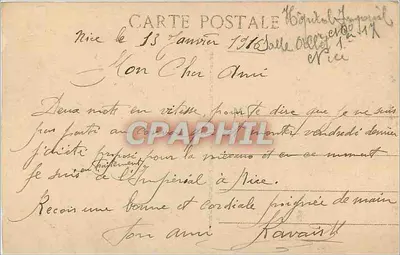 CARTE POSTALE
Hôpital Impérial
Salle
Nice
Nice le 13 Janvier 1916
Mon Cher Ami
Deux mots en vitesse pour te dire que je ne suis
pas partis au vendredi dernier
j'étais proposé pour la et en ce moment
je suis en traitement à l'Impérial à Nice.
Recois une bonne et cordiale poignée de main
Ton ami Ravaist
CPAPHIL